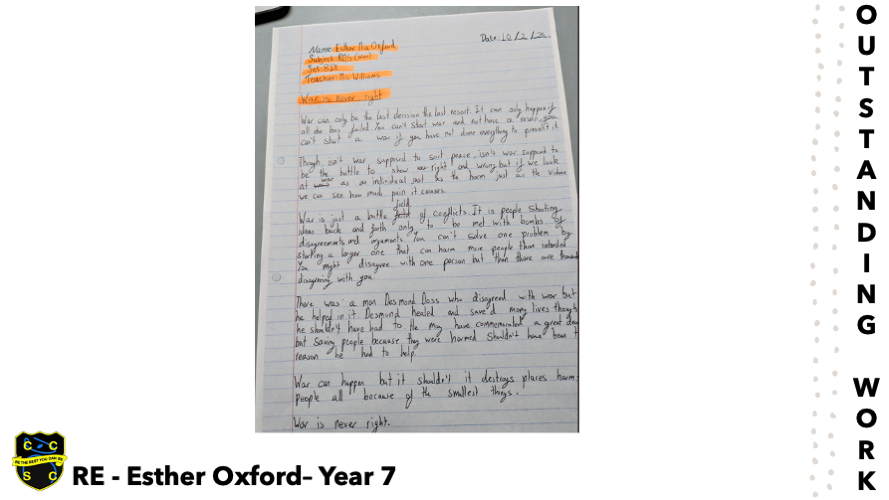 Name: Esther Mae Oxford
Subject: RPS (war)
Set: 
Teacher: Ms Williams
Date: 10/2/2
War is never right
War can only be the last decision the last resort. It can only happen if
all else has failed You can't start war and not have a reason, you
can't start a war if you have not done everything to prevent it
Though isn't war supposed to sort peace, isn't war supposed to
be the battle to show right and wrong but if we look
at war as an individual just as the harm just as the violence
we can see how much pain it causes.
War is just a battle field of conflicts. It is people shooting
ideas back and forth only to be met with bombs of
disagreements and arguments You can't solve one problem by
starting a larger one that can harm more people than intended
You might disagree with one person but then there are
disagreeing with you!
There was a man Desmond Doss who disagreed with war but
he helped in it Desmund healed and save'd many lives though
he shouldn't have had to He may have commemorated a great
but Saving people because they were harmed Shouldn't have been
reason he had to help.
War can happen but it shouldn't it destroys places harm
people all because of the smallest things.
War is never right.
C C
BE THE BEST YOU CAN BE
S C
RE - Esther Oxford– Year 7
OUTSTANDING
WORK